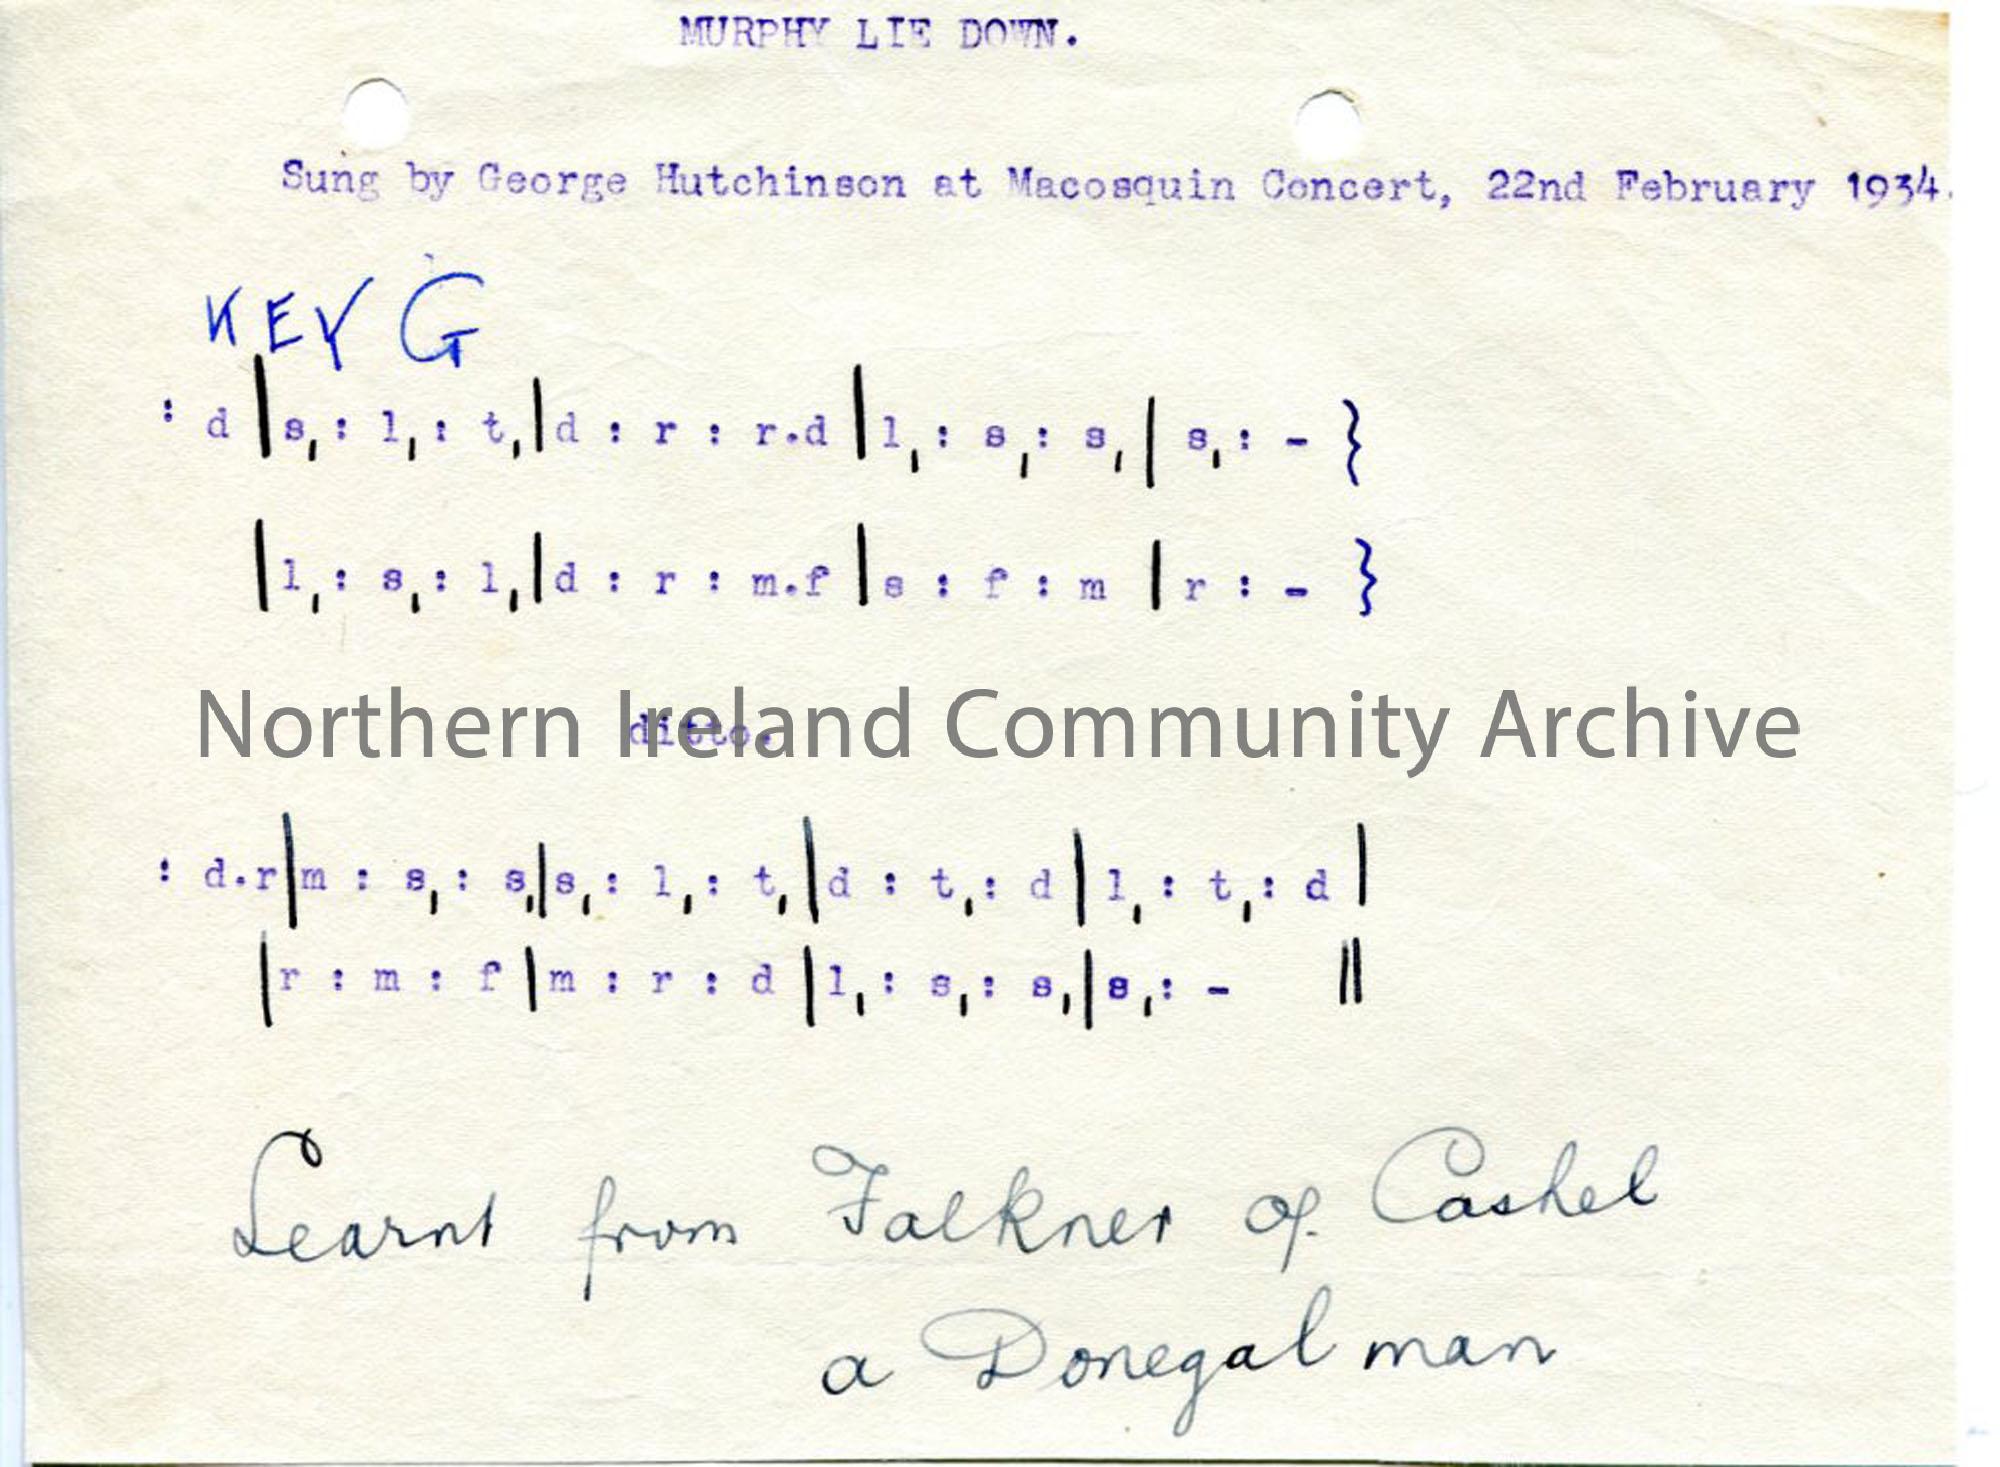 MURPHY LIE DOWN.
Sung by George Hutchinson at Macosquin Concert, 22nd February 1934.
KEY G
: d | s, : l, : t, | d : r : r.d | l, : s, : s, | s, : - }
| l, : s, : l, | d : r : m.f | s : f : m | r : - }
Northern Ireland Community Archive
ditto.
: d.r | m : s, : s, | s, : l, : t, | d : t, : d | l, : t, : d |
| r : m : f | m : r : d | l, : s, : s, | s, : - ||
Learnt from Falkner of Cashel
a Donegal man